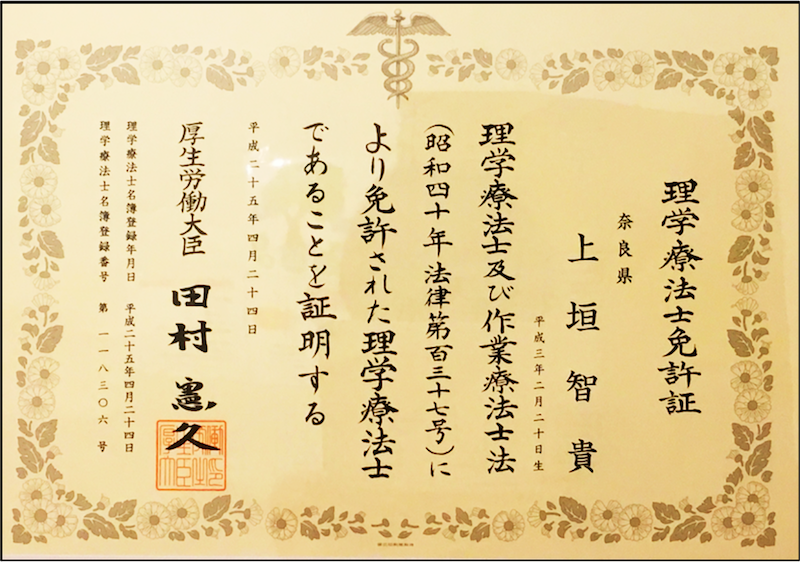 理学療法士免許証
奈良県
上垣智貴
平成三年二月二十日生
理学療法士及び作業療法士法
（昭和四十年法律第百三十七号）に
より免許された理学療法士
であることを証明する
平成二十五年四月二十四日
厚生労働大臣 田村憲久
理学療法士名簿登録年月日 平成二十五年四月二十四日
理学療法士名簿登録番号 第一一八三〇六号